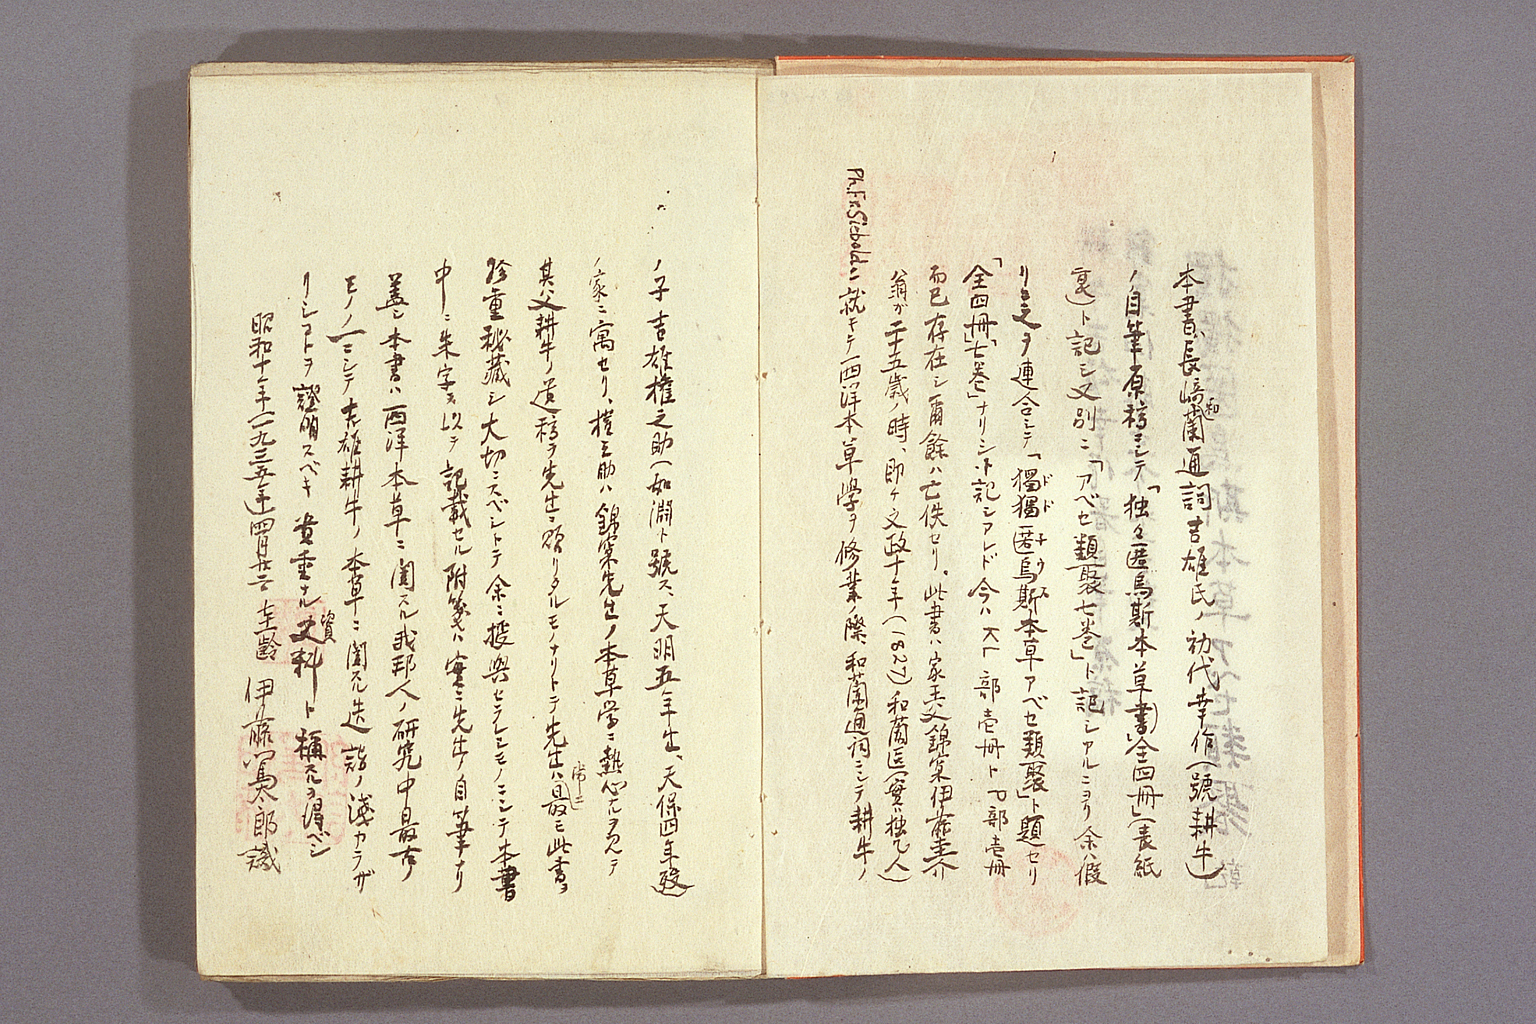 本書ハ長崎和蘭通詞吉雄氏ノ初代幸作(號耕牛)
ノ自筆原稿ニシテ「独々匿烏斯本草書」全四冊」(表紙
裏)ト記シ又別ニ「アベセ類聚七巻」ト記シアルニヨリ余ハ假
リニ之ヲ連合シテ「獨獨匿烏斯本草アベセ類聚」ト題セリ
ドドナウス
「全四冊」「七巻」ナリシト記シアレド今ハ 部壱冊ト 部壱冊
而已存在シ爾餘ハ亡佚セリ。此書ハ家王父錦窠伊藤圭介
翁ガ二十五歳ノ時、即ケ文政十年(1827)和蘭医(實ハ独乙人)
Ph. Fr. Sieboldニ就キテ西洋本草學ヲ修業ノ際、和蘭通詞ニシテ耕牛ノ
ノ子吉雄権之助(如淵ト號ス、天明五年生、天保四年歿)
ノ家ニ寓セリ、権之助ハ錦窠先生ノ本草学ニ熱心ナルヲ見テ
其父耕牛ノ遺稿ヲ先生ニ頒リタルモノナリトテ先生ハ最モ此書ヲ
常ニ
珍重秘藏シ大切ニスベシトテ余ニ授與セラレシモノニシテ本書
中ニ朱字ヲ以テ記載セル附箋ハ實ニ先生ノ自筆ナリ
蓋シ本書ハ西洋本草ニ関スル我邦人ノ研究中最古ノ
モノノ一ニシテ吉雄耕牛ノ本草ニ関スル造詣ノ淺カラザ
リシコトヲ證明スベキ貴重ナル史資料ト稱スルヲ得ベシ
昭和十年一九三五年四月廿二 圭齡 伊藤篤太郎識